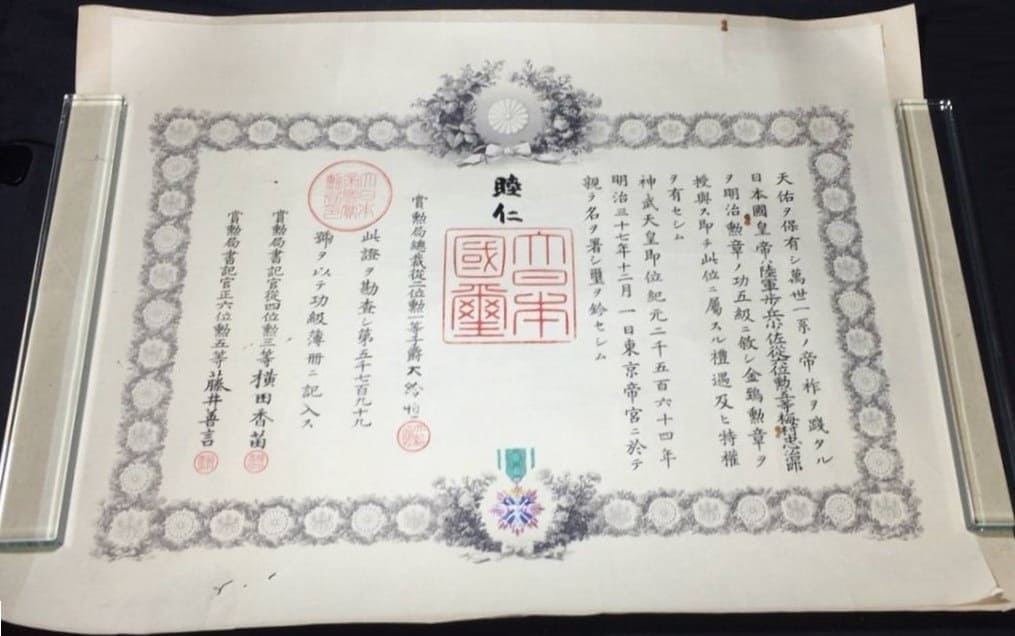 天佑ヲ保有シ萬世一系ノ帝祚ヲ踐タル
日本國皇帝ハ陸軍步兵少佐從六位勲五等梅村忠治郎
ヲ明治勲章ノ功五級ニ敘シ金鵄勲章ヲ
授與ス即チ此位ニ屬スル禮遇及ヒ特權
ヲ有セシム
神武天皇即位紀元二千五百六十四年
明治三十七年十二月一日東京帝宮ニ於テ
親ラ名ヲ署シ璽ヲ鈐セシム
睦仁
大日本
國璽
賞勲局總裁從二位勲一等子爵大給恒
此證ヲ勘査シ第五千七百九十九
號ヲ以テ功級簿册ニ記入ス
大日本
賞勲局書記官從四位勲三等横田香苗
賞勲局書記官正六位勲五等藤井善言